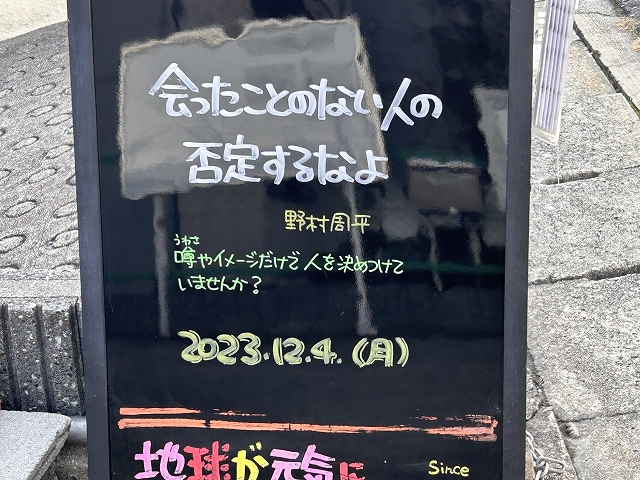 会ったことのない人の
否定するなよ
野村周平
うわさ
噂やイメージだけで人を決めつけて
いませんか?
2023.12.4.(月)
地球が元気に
Since